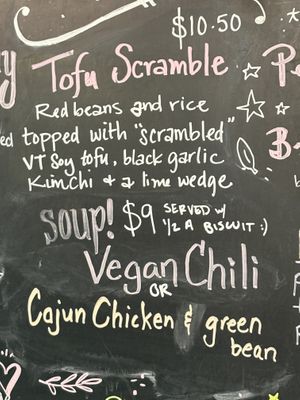 $10.50
Tofu Scramble
Red beans and rice
topped with "scrambled"
VT Soy tofu, black garlic
Kimchi & a lime wedge
Soup! $9 SERVED w/
1/2 A BISCUIT :)
Vegan Chili
OR
Cajun Chicken & green
bean